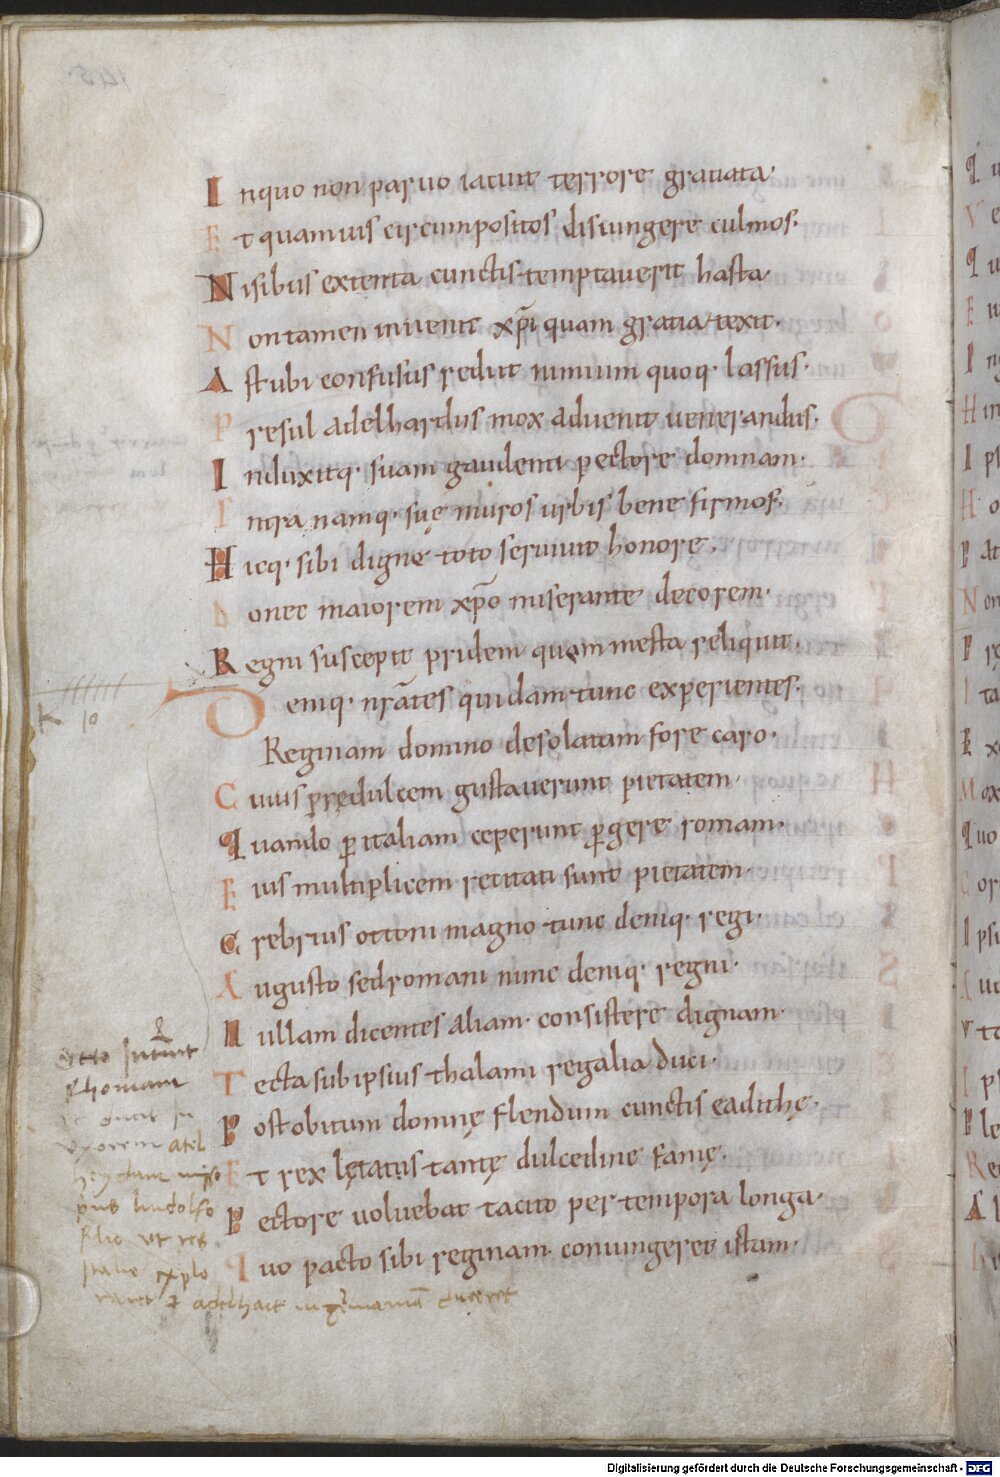 In quo non paruo iacuit terrore grauata·
Et quamuis circumpositos disiungere culmos·
Nisibus extenta cunctis temptauerit hasta·
Non tamen inuenit xp̄i quam gratia texit·
Ast ubi confusus rediit nimium quoq· lassus·
Presul adelhardus mox aduenit uenerandus·
Induxitq· suam gaudenti pectore domnam·
Intra namq· suę muros urbis bene firmos·
Hicq· sibi digne toto seruiuit honore·
Donec maiorem xp̄o miserante decorem·
Regni suscepit pridem quam mesta reliquit·
Deniq· nr̄ates quidam tunc experientes·
Reginam domino desolatam fore caro·
Cuius prędulcem gustauerunt pietatem·
Quando ꝑ italiam ceperunt ꝑgere romam·
Eius multiplicem recitati sunt pietatem·
Crebrius ottoni magno tunc deniq· regi·
Augusto sed romani nunc deniq· regni·
Nullam dicentes aliam· consistere dignam·
Tecta sub ipsius thalami regalia duci·
Post obitum domnę flendum cunctis eadithę·
Et rex lętatus tantę dulcedine famę·
Pectore uoluebat tacito per tempora longa·
Quo pacto sibi reginam coniungeret istam·
Rhomam
vxorem
ludolfo
filio vt res
Italie explo
Digitalisierung gefördert durch die Deutsche Forschungsgemeinschaft - DFG